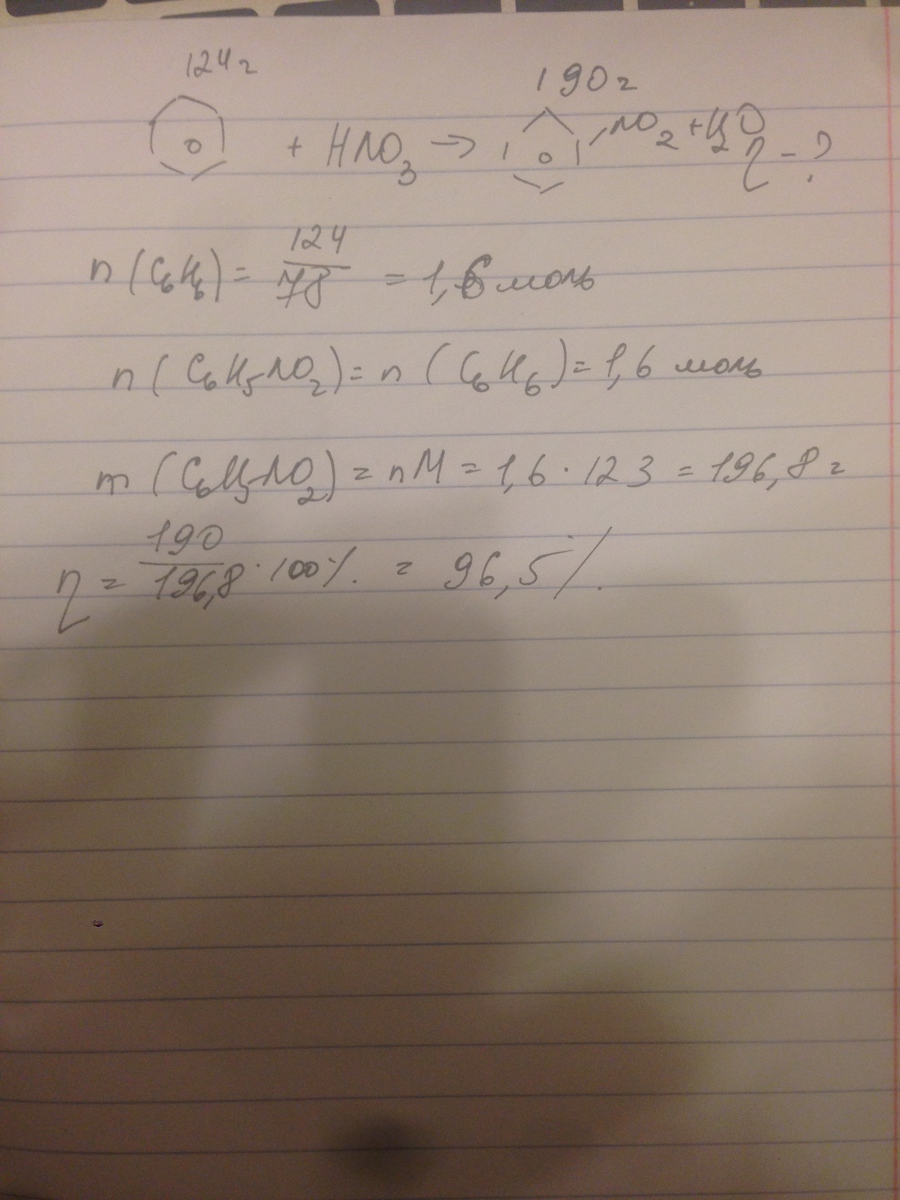 124г 190г
+ HNO₃ → NO₂ + H₂O η - ?
n (C₆H₆) = 124/78 = 1,6 моль
n ( C₆H₅NO₂) = n (C₆H₆) = 1,6 моль
m (C₆H₅NO₂) = nM = 1,6 · 123 = 196,8 г
η = 190/196,8 · 100% = 96,5%.